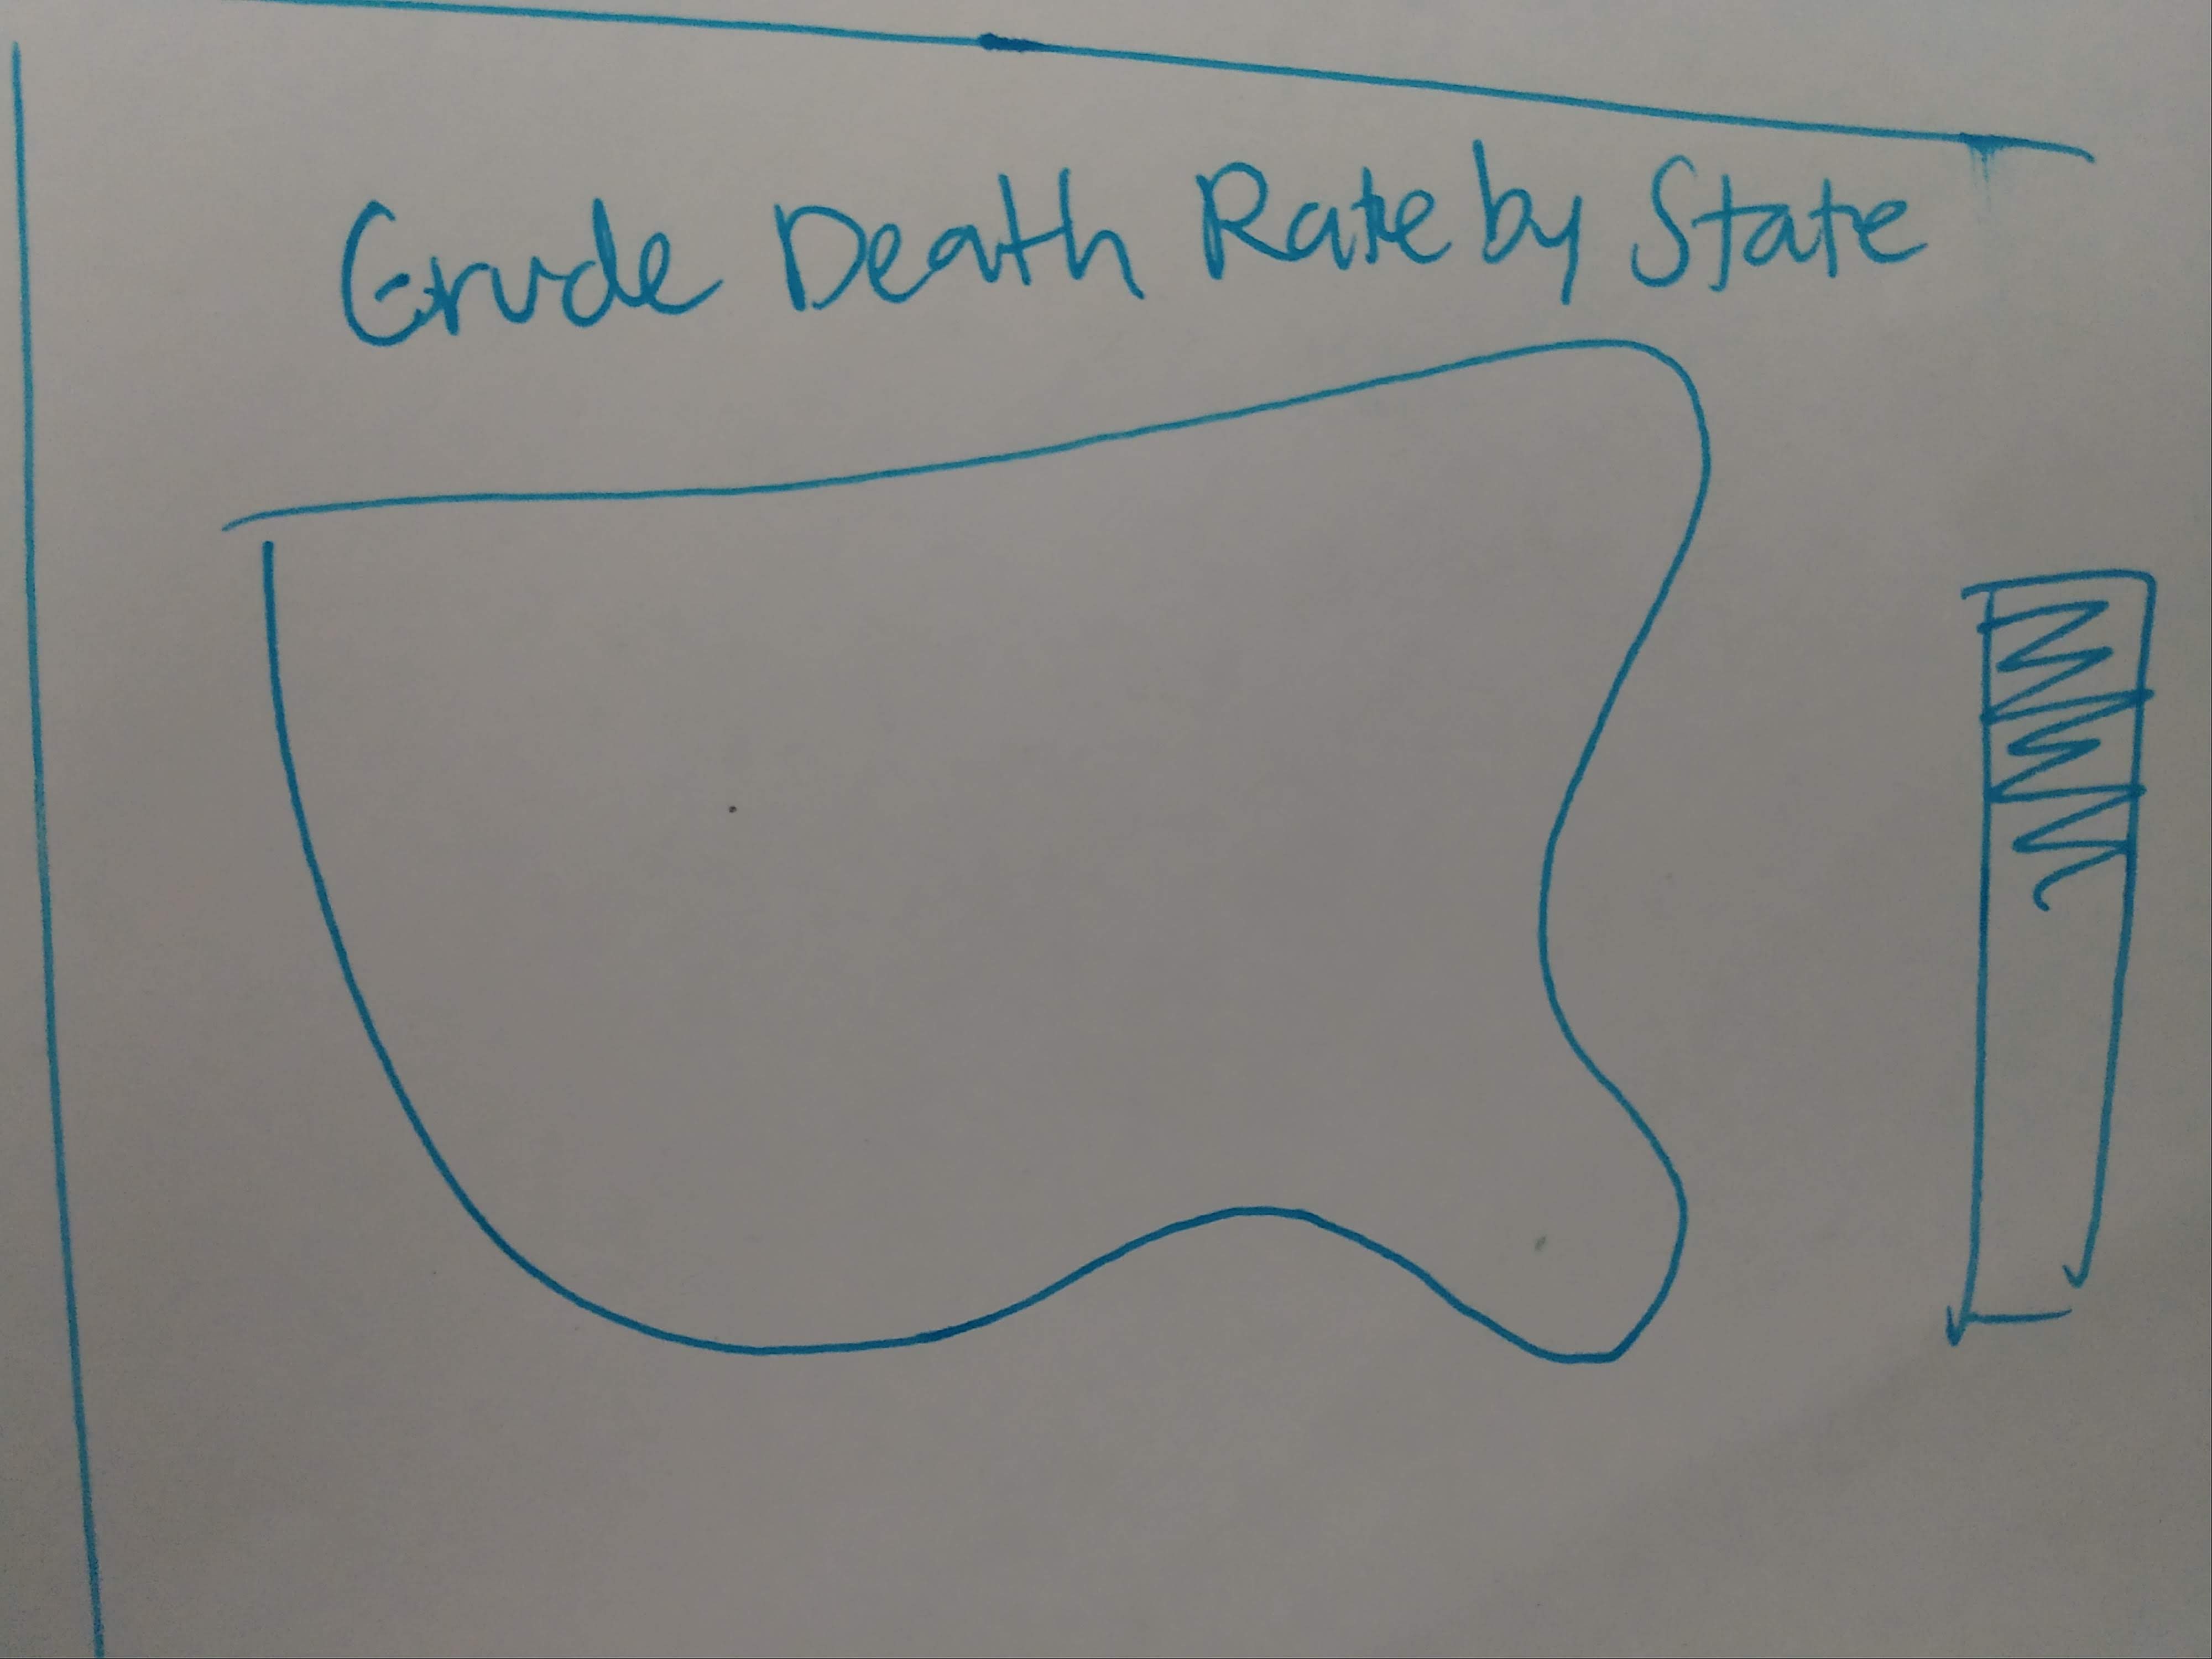 Crude Death Rate by State